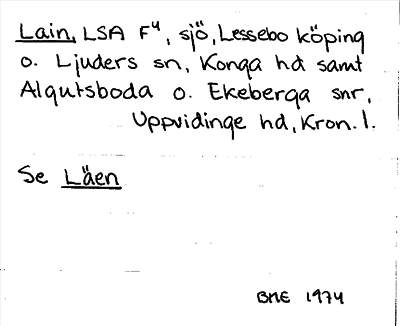 Lain, LSA F4, sjö, Lessebo köping
o. Ljuders sn, Konga hd samt
Algutsboda o. Ekeberga snr,
Uppvidinge hd, Kron. l.
Se Läen
BME 1974